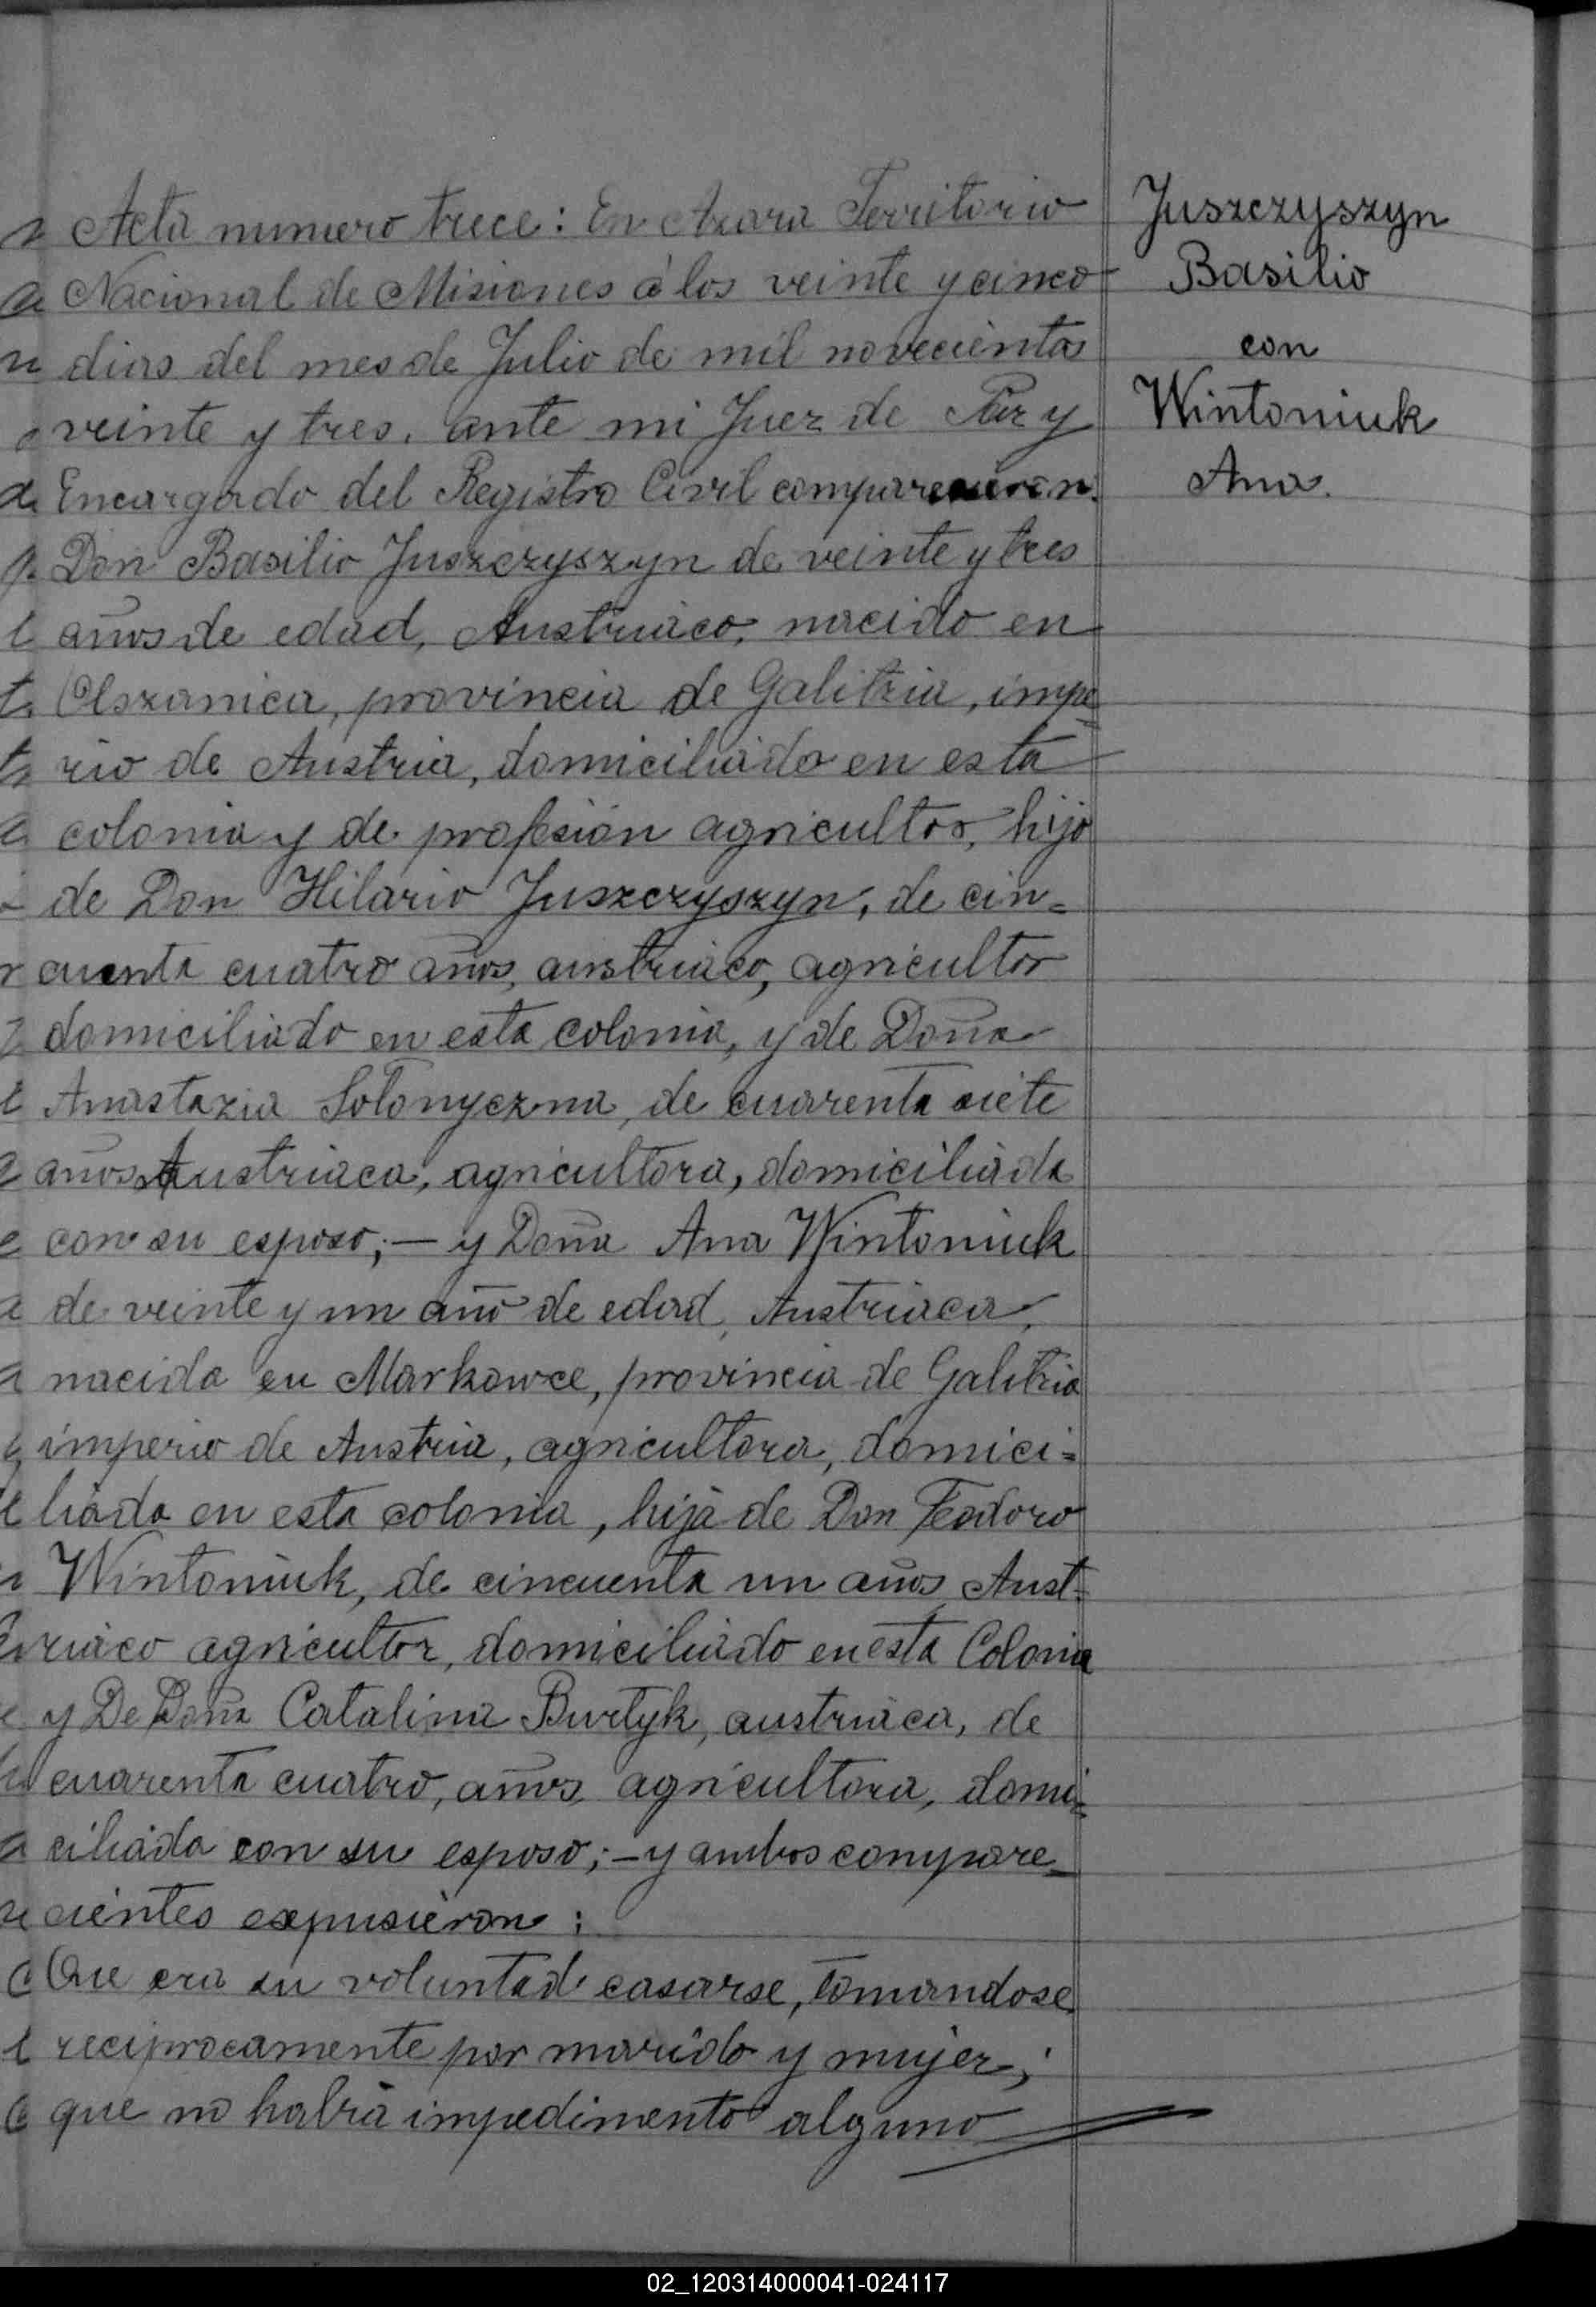 Acta numero trece: En Azara Territorio
Nacional de Misiones á los veinte y cinco
dias del mes de Julio de mil novecientos
veinte y tres, ante mi Juez de Paz y
Encargado del Registro Civil comparecieron.
Don Basilio Juszczyszyn de veinte y tres
años de edad, Austriaco, nacido en
Olszanica, provincia de Galitzia, impe=
rio de Austria, domiciliado en esta
colonia y de profesión agricultor, hijo
de Don Hilario Juszczyszyn, de cin=
cuenta cuatro años, austriaco, agricultor
domiciliado en esta colonia, y de Doña
Anastazia Solonyczna, de cuarenta siete
años Austriaca, agricultora, domiciliada
con su esposo; — y Doña Ana Wintoniuk
de veinte y un año de edad, Austriaca,
nacida en Markowce, provincia de Galitzia
imperio de Austria, agricultora, domici=
liada en esta colonia, hija de Don Teodoro
Wintoniuk, de cincuenta un años, Aust=
riaco agricultor, domiciliado en esta Colonia
y De Doña Catalina Burtyk, austriaca, de
cuarenta cuatro, años, agricultora, domi=
ciliada con su esposo; – y ambos compare=
cientes expusieron:
Que era su voluntad casarse, tomandose
reciprocamente por marido y mujer,;
que no habia impedimento alguno
Juszczyszyn
Basilio
con
Wintoniuk
Ana.
02_120314000041-024117